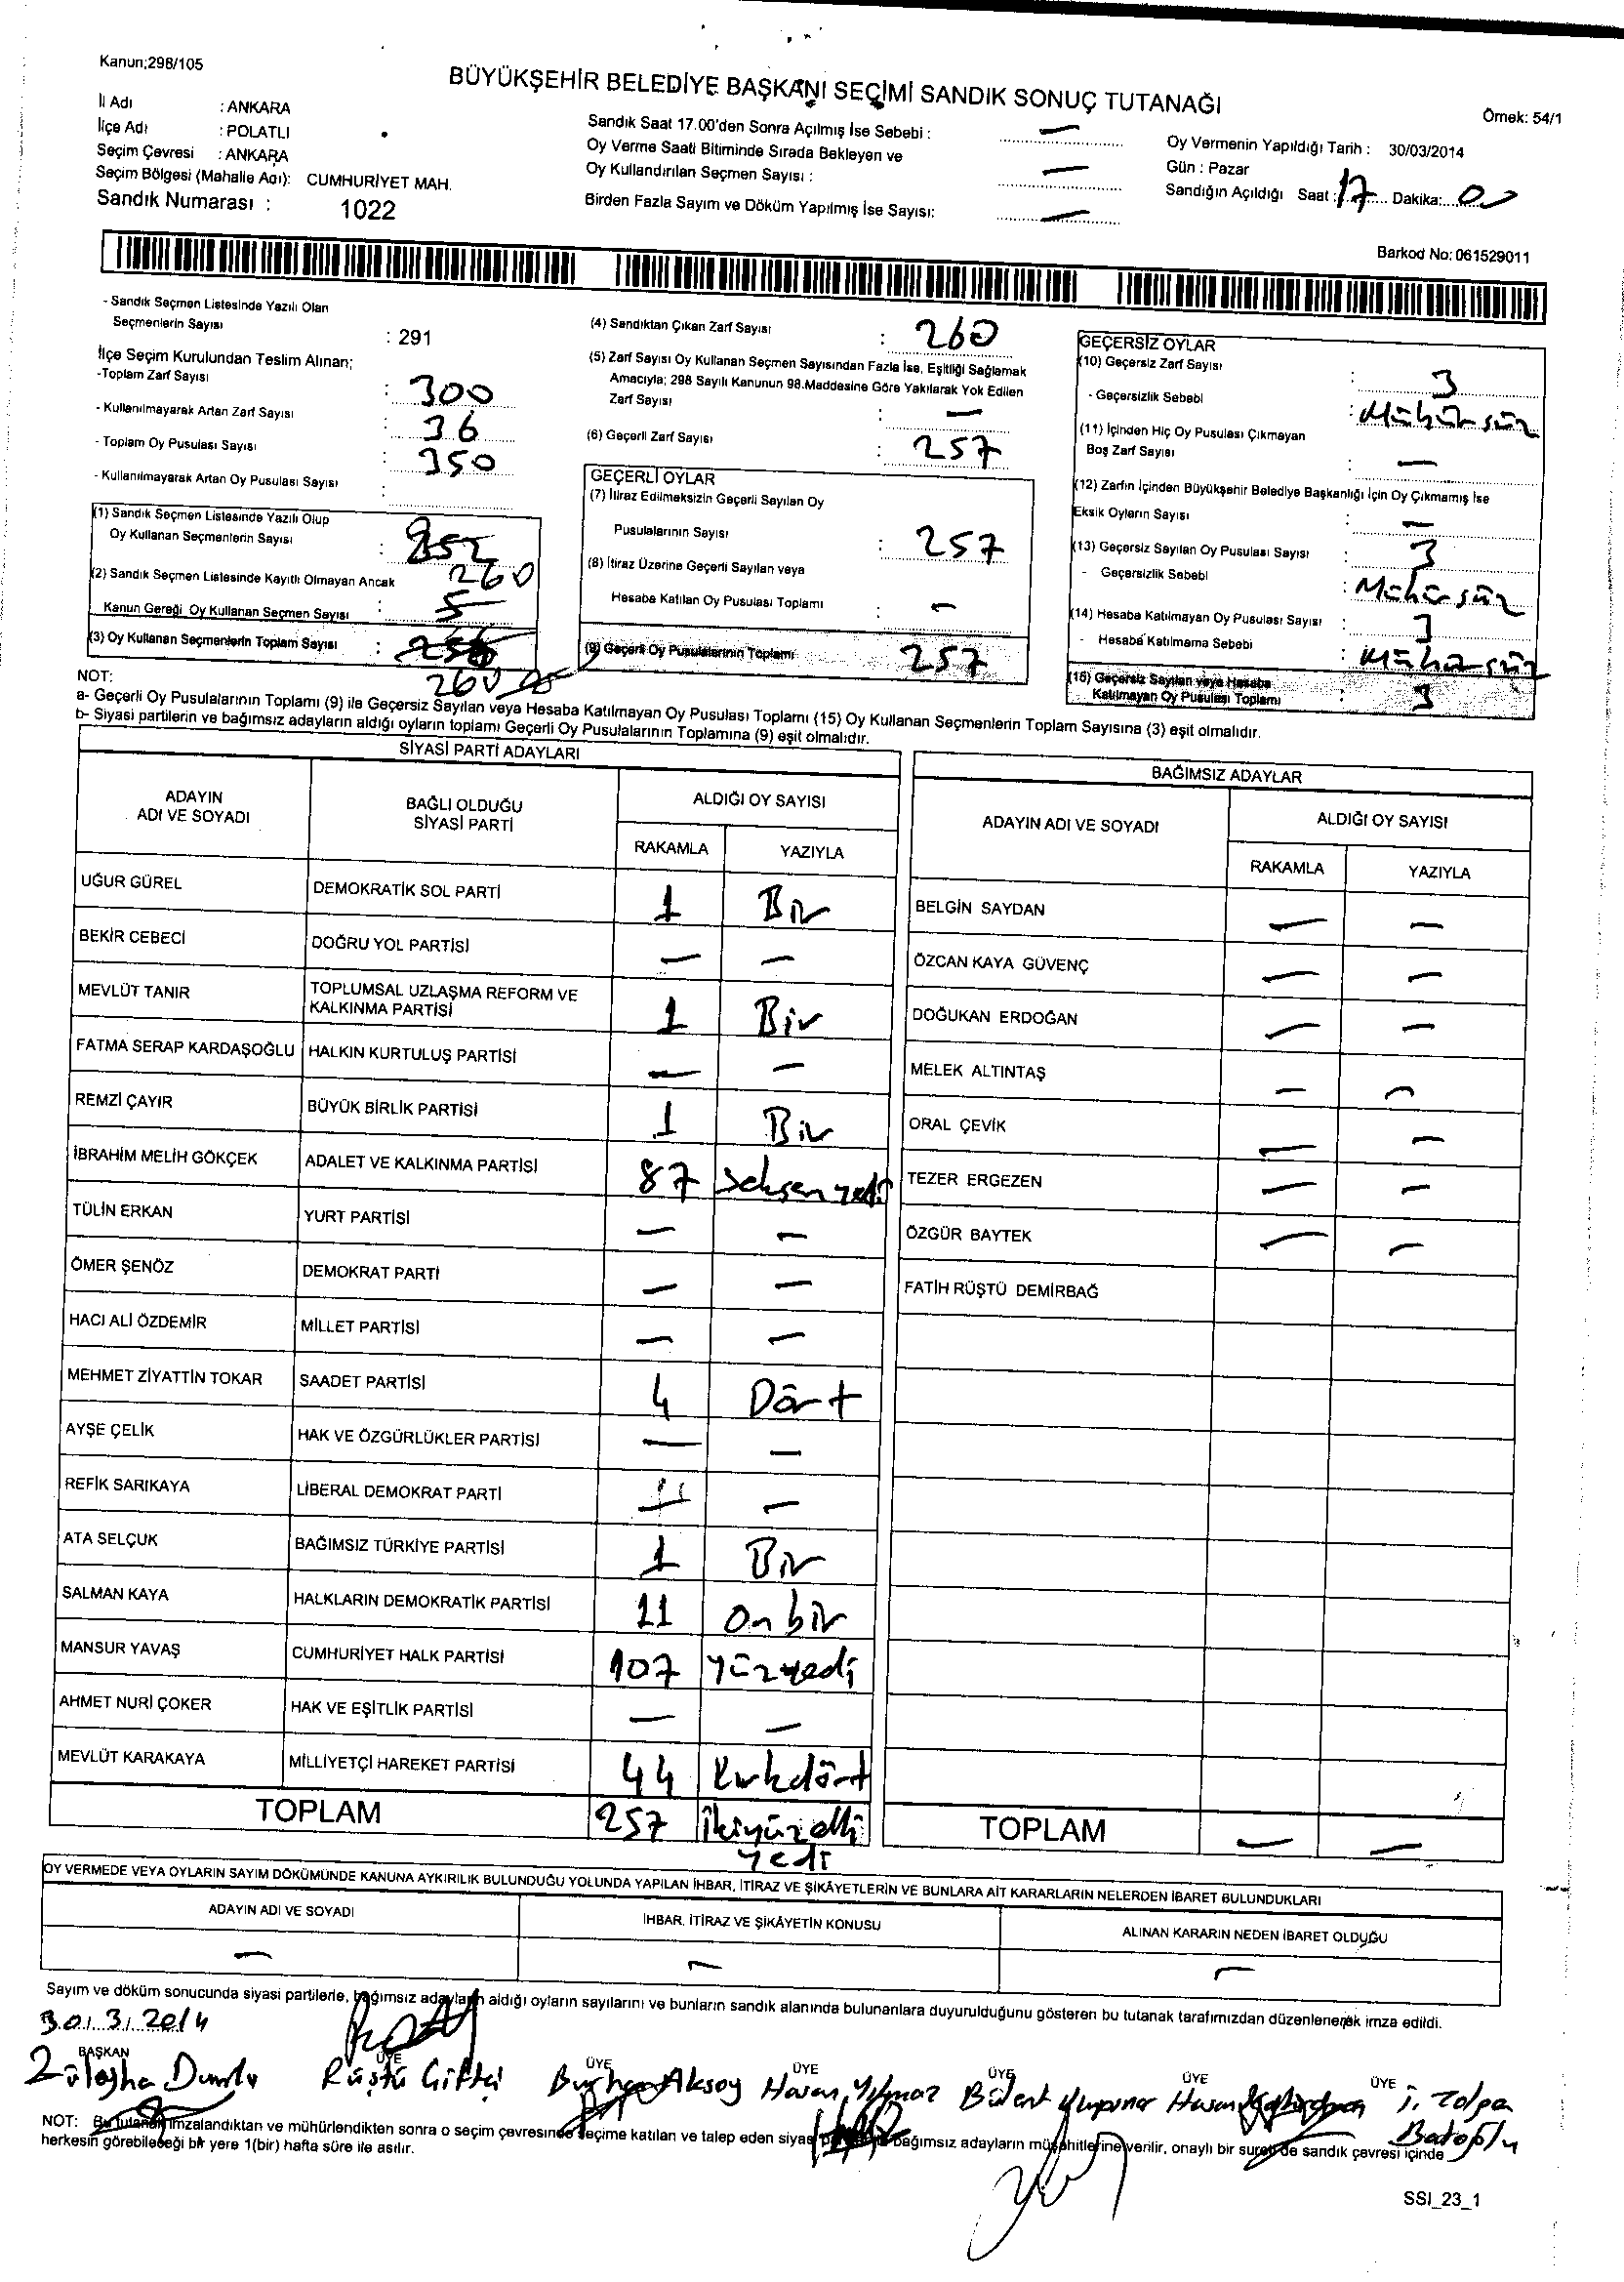 Kanun;298/105
BÜYÜKŞEHİR BELEDİYE BAŞKANI SEÇİMİ SANDIK SONUÇ TUTANAĞI
Örnek: 54/1
İl Adı : ANKARA
İlçe Adı : POLATLI
Seçim Çevresi : ANKARA
Seçim Bölgesi (Mahalle Adı): CUMHURİYET MAH.
Sandık Numarası : 1022
Sandık Saat 17.00'den Sonra Açılmış İse Sebebi : —
Oy Verme Saati Bitiminde Sırada Bekleyen ve
Oy Kullandırılan Seçmen Sayısı : —
Birden Fazla Sayım ve Döküm Yapılmış İse Sayısı: —
Oy Vermenin Yapıldığı Tarih : 30/03/2014
Gün : Pazar
Sandığın Açıldığı Saat : 17 Dakika: 00
Barkod No: 061529011
- Sandık Seçmen Listesinde Yazılı Olan
Seçmenlerin Sayısı : 291
İlçe Seçim Kurulundan Teslim Alınan;
-Toplam Zarf Sayısı : 300
- Kullanılmayarak Artan Zarf Sayısı : 36
- Toplam Oy Pusulası Sayısı : 350
- Kullanılmayarak Artan Oy Pusulası Sayısı :
(1) Sandık Seçmen Listesinde Yazılı Olup
Oy Kullanan Seçmenlerin Sayısı :
260
(2) Sandık Seçmen Listesinde Kayıtlı Olmayan Ancak
Kanun Gereği Oy Kullanan Seçmen Sayısı : 5
(3) Oy Kullanan Seçmenlerin Toplam Sayısı :
260
(4) Sandıktan Çıkan Zarf Sayısı : 260
(5) Zarf Sayısı Oy Kullanan Seçmen Sayısından Fazla İse, Eşitliği Sağlamak
Amacıyla; 298 Sayılı Kanunun 98.Maddesine Göre Yakılarak Yok Edilen
Zarf Sayısı : —
(6) Geçerli Zarf Sayısı : 257
GEÇERLİ OYLAR
(7) İtiraz Edilmeksizin Geçerli Sayılan Oy
Pusulalarının Sayısı : 257
(8) İtiraz Üzerine Geçerli Sayılan veya
Hesaba Katılan Oy Pusulası Toplamı : —
(9) Geçerli Oy Pusulalarının Toplamı 257
GEÇERSİZ OYLAR
(10) Geçersiz Zarf Sayısı : 3
- Geçersizlik Sebebi : Mühürsüz
(11) İçinden Hiç Oy Pusulası Çıkmayan
Boş Zarf Sayısı : —
(12) Zarfın İçinden Büyükşehir Belediye Başkanlığı İçin Oy Çıkmamış İse
Eksik Oyların Sayısı : —
(13) Geçersiz Sayılan Oy Pusulası Sayısı : 3
- Geçersizlik Sebebi : Mühürsüz
(14) Hesaba Katılmayan Oy Pusulası Sayısı : 3
- Hesaba Katılmama Sebebi : Mühürsüz
(15) Geçersiz Sayılan veya Hesaba
Katılmayan Oy Pusulası Toplamı : 3
NOT:
a- Geçerli Oy Pusulalarının Toplamı (9) ile Geçersiz Sayılan veya Hesaba Katılmayan Oy Pusulası Toplamı (15) Oy Kullanan Seçmenlerin Toplam Sayısına (3) eşit olmalıdır.
b- Siyasi partilerin ve bağımsız adayların aldığı oyların toplamı Geçerli Oy Pusulalarının Toplamına (9) eşit olmalıdır.
SİYASİ PARTİ ADAYLARI
ADAYIN ADI VE SOYADI BAĞLI OLDUĞU SİYASİ PARTİ ALDIĞI OY SAYISI
RAKAMLA YAZIYLA
UĞUR GÜREL DEMOKRATİK SOL PARTİ 1 Bir
BEKİR CEBECİ DOĞRU YOL PARTİSİ — —
MEVLÜT TANIR TOPLUMSAL UZLAŞMA REFORM VE KALKINMA PARTİSİ 1 Bir
FATMA SERAP KARDAŞOĞLU HALKIN KURTULUŞ PARTİSİ — —
REMZİ ÇAYIR BÜYÜK BİRLİK PARTİSİ 1 Bir
İBRAHİM MELİH GÖKÇEK ADALET VE KALKINMA PARTİSİ 87 Seksen yedi
TÜLİN ERKAN YURT PARTİSİ — —
ÖMER ŞENÖZ DEMOKRAT PARTİ — —
HACI ALİ ÖZDEMİR MİLLET PARTİSİ — —
MEHMET ZİYATTİN TOKAR SAADET PARTİSİ 4 Dört
AYŞE ÇELİK HAK VE ÖZGÜRLÜKLER PARTİSİ — —
REFİK SARIKAYA LİBERAL DEMOKRAT PARTİ —
ATA SELÇUK BAĞIMSIZ TÜRKİYE PARTİSİ 1 Bir
SALMAN KAYA HALKLARIN DEMOKRATİK PARTİSİ 11 On bir
MANSUR YAVAŞ CUMHURİYET HALK PARTİSİ 107 Yüzyedi
AHMET NURİ ÇOKER HAK VE EŞİTLİK PARTİSİ — —
MEVLÜT KARAKAYA MİLLİYETÇİ HAREKET PARTİSİ 44 Kırkdört
TOPLAM 257 İkiyüzelli
yedi
BAĞIMSIZ ADAYLAR
ADAYIN ADI VE SOYADI ALDIĞI OY SAYISI
RAKAMLA YAZIYLA
BELGİN SAYDAN — —
ÖZCAN KAYA GÜVENÇ — —
DOĞUKAN ERDOĞAN — —
MELEK ALTINTAŞ — —
ORAL ÇEVİK — —
TEZER ERGEZEN — —
ÖZGÜR BAYTEK — —
FATİH RÜŞTÜ DEMİRBAĞ
TOPLAM — —
OY VERMEDE VEYA OYLARIN SAYIM DÖKÜMÜNDE KANUNA AYKIRILIK BULUNDUĞU YOLUNDA YAPILAN İHBAR, İTİRAZ VE ŞİKÂYETLERİN VE BUNLARA AİT KARARLARIN NELERDEN İBARET BULUNDUKLARI
ADAYIN ADI VE SOYADI İHBAR, İTİRAZ VE ŞİKÂYETİN KONUSU ALINAN KARARIN NEDEN İBARET OLDUĞU
— — —
Sayım ve döküm sonucunda siyasi partilerle, bağımsız adayların aldığı oyların sayılarını ve bunların sandık alanında bulunanlara duyurulduğunu gösteren bu tutanak tarafımızdan düzenlenerek imza edildi.
30.3.2014
BAŞKAN ÜYE ÜYE ÜYE ÜYE ÜYE ÜYE
Rüştü Çiftçi Burhan Aksoy Hasan Yılmaz Bülent Hasan
NOT: Bu tutanak imzalandıktan ve mühürlendikten sonra o seçim çevresinde seçime katılan ve talep eden siyasi bağımsız adayların müşahitlerine verilir, onaylı bir sureti de sandık çevresi içinde
herkesin görebileceği bir yere 1(bir) hafta süre ile asılır.
SSI_23_1